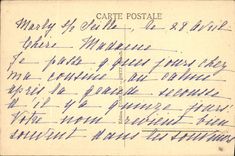 CARTE POSTALE
Marly s/ Seille, le 28 avril
Chère Madame
Je passe qques jours chez
ma cousine au calme
après la grande secousse
d'il y a quinze jours
Votre nom revient bien
souvent dans les souvenirs